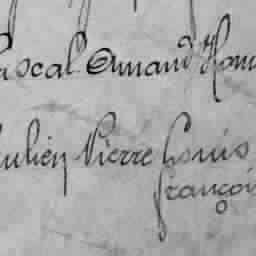 Pascal Armand Hon
Julien Pierre Louis
François